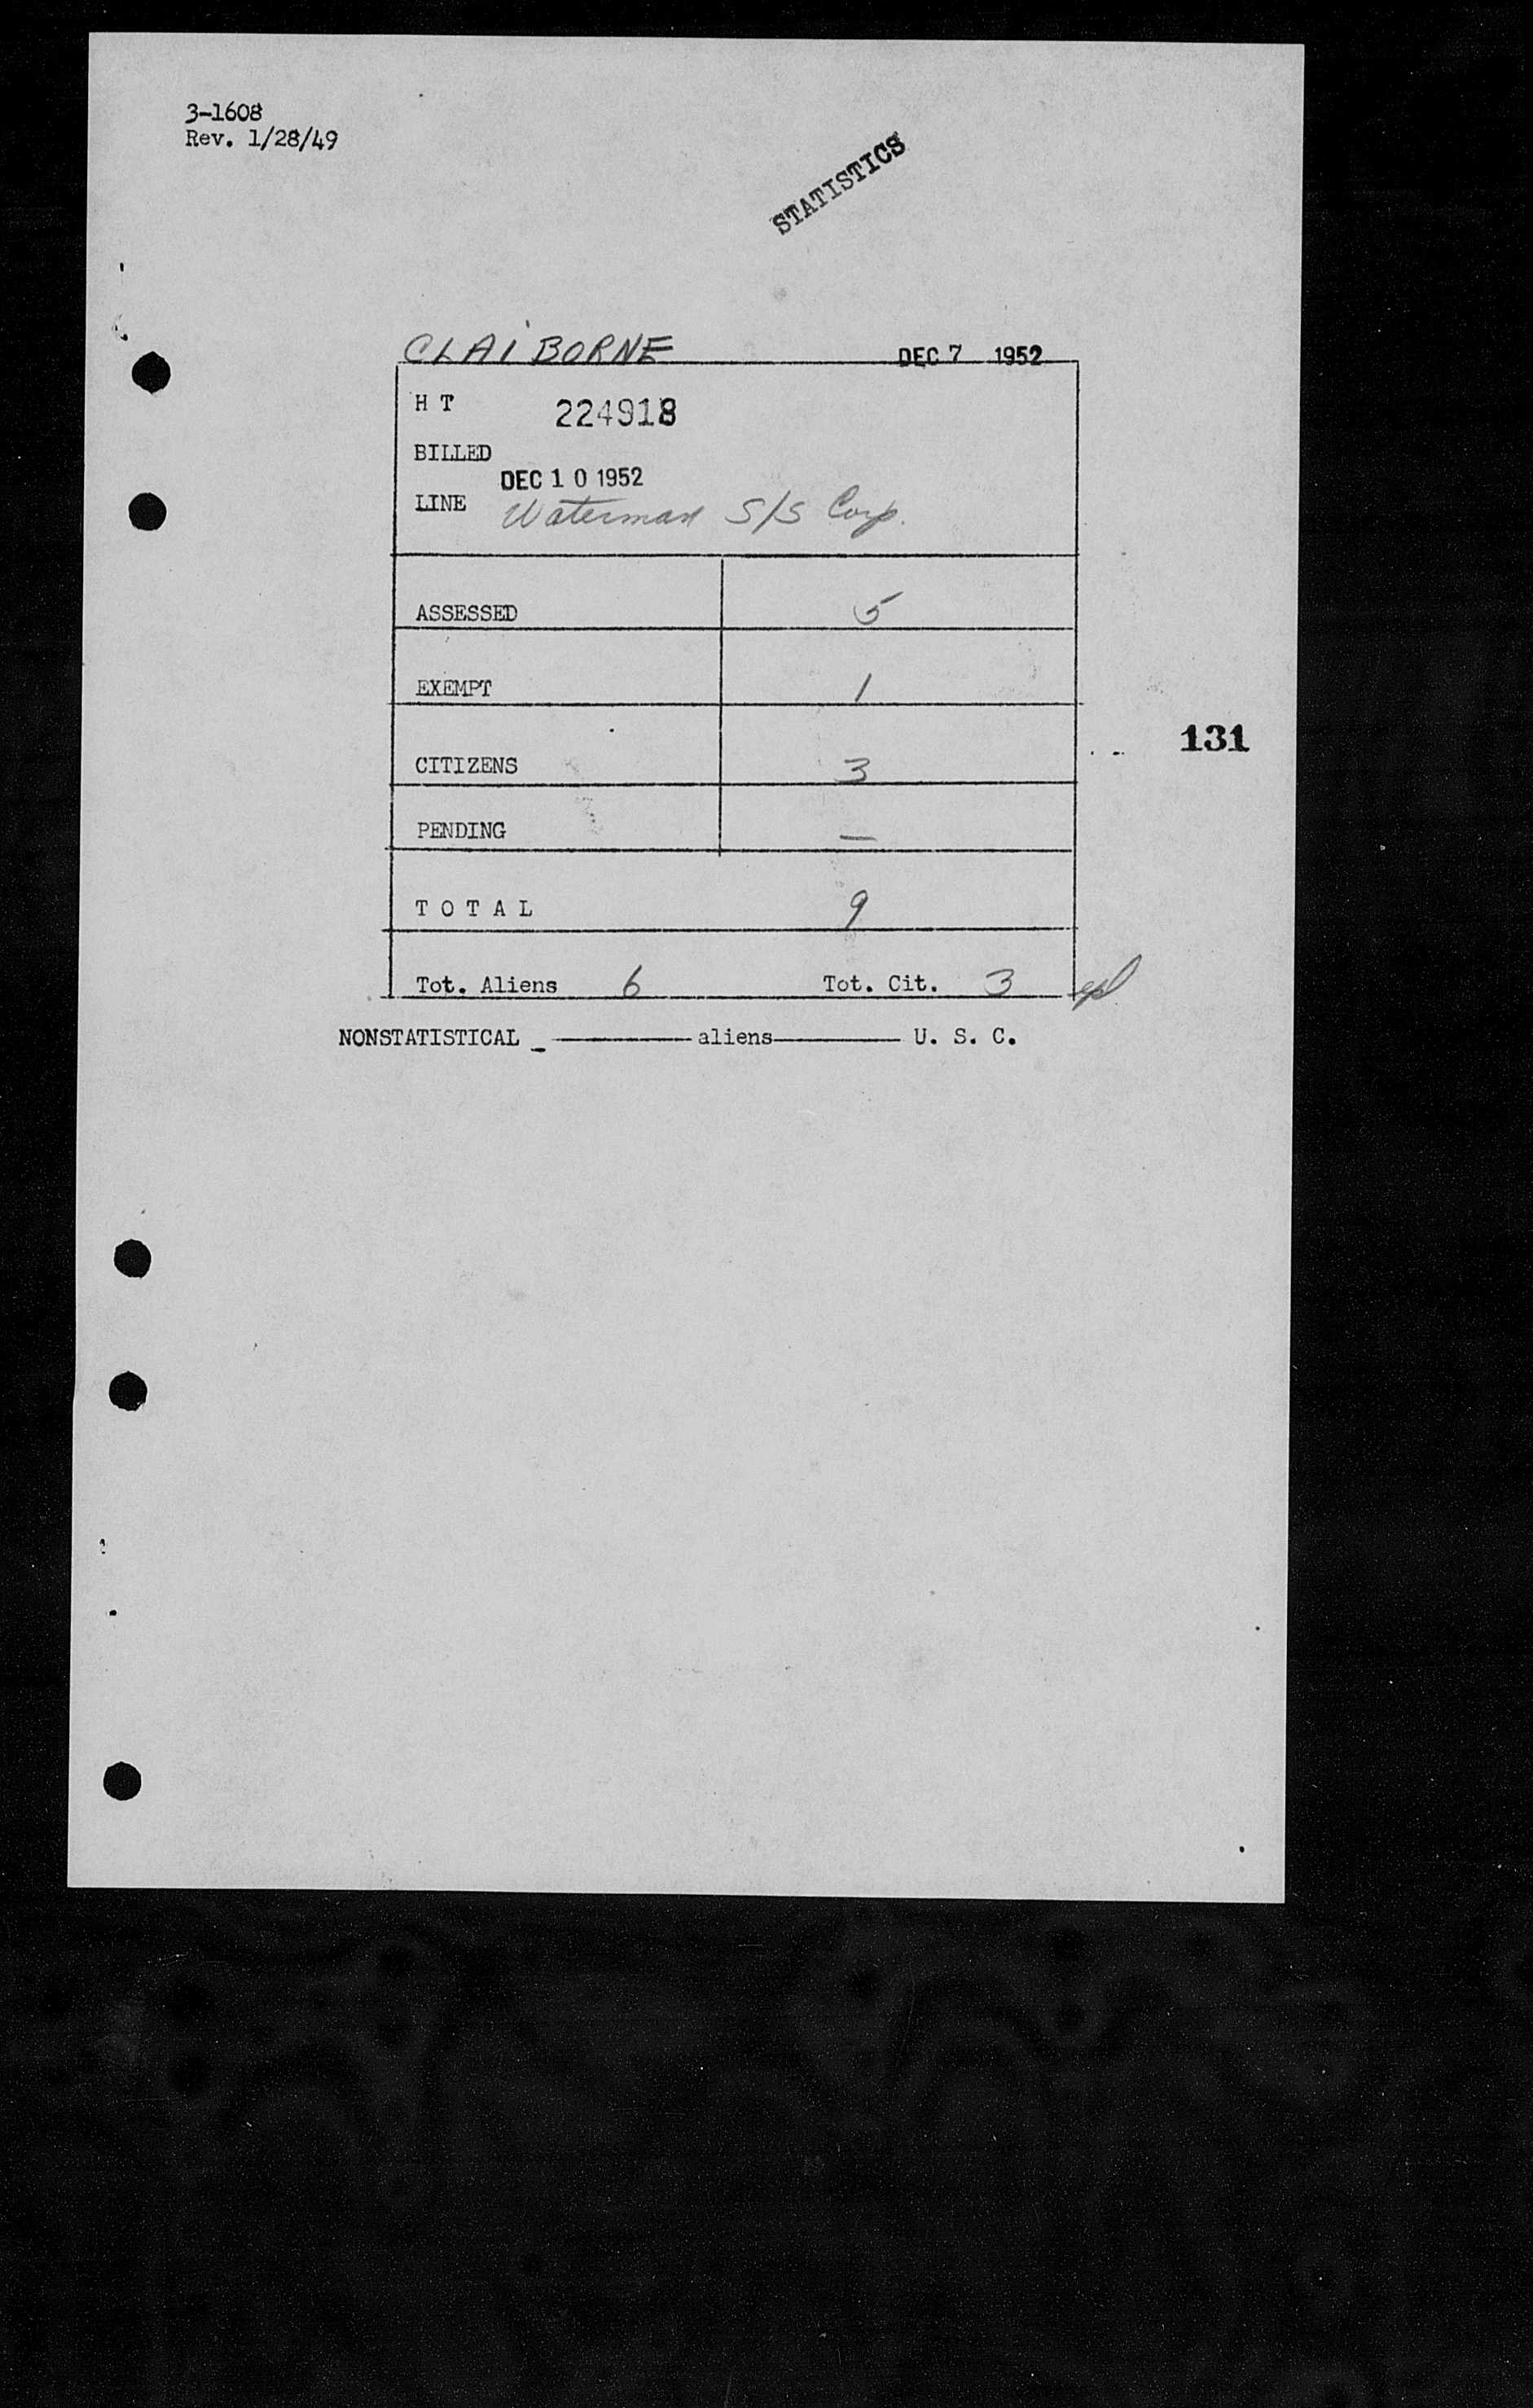 3-1608
Rev. 1/28/49
STATISTICS
CLAIBORNE DEC 7 1952
H T 224918
BILLED
DEC 10 1952
LINE Waterman S/S Corp.
ASSESSED 5
EXEMPT 1
131
CITIZENS 3
PENDING —
T O T A L 9
Tot. Aliens 6 Tot. Cit. 3
NONSTATISTICAL _ ———— aliens———— U. S. C.